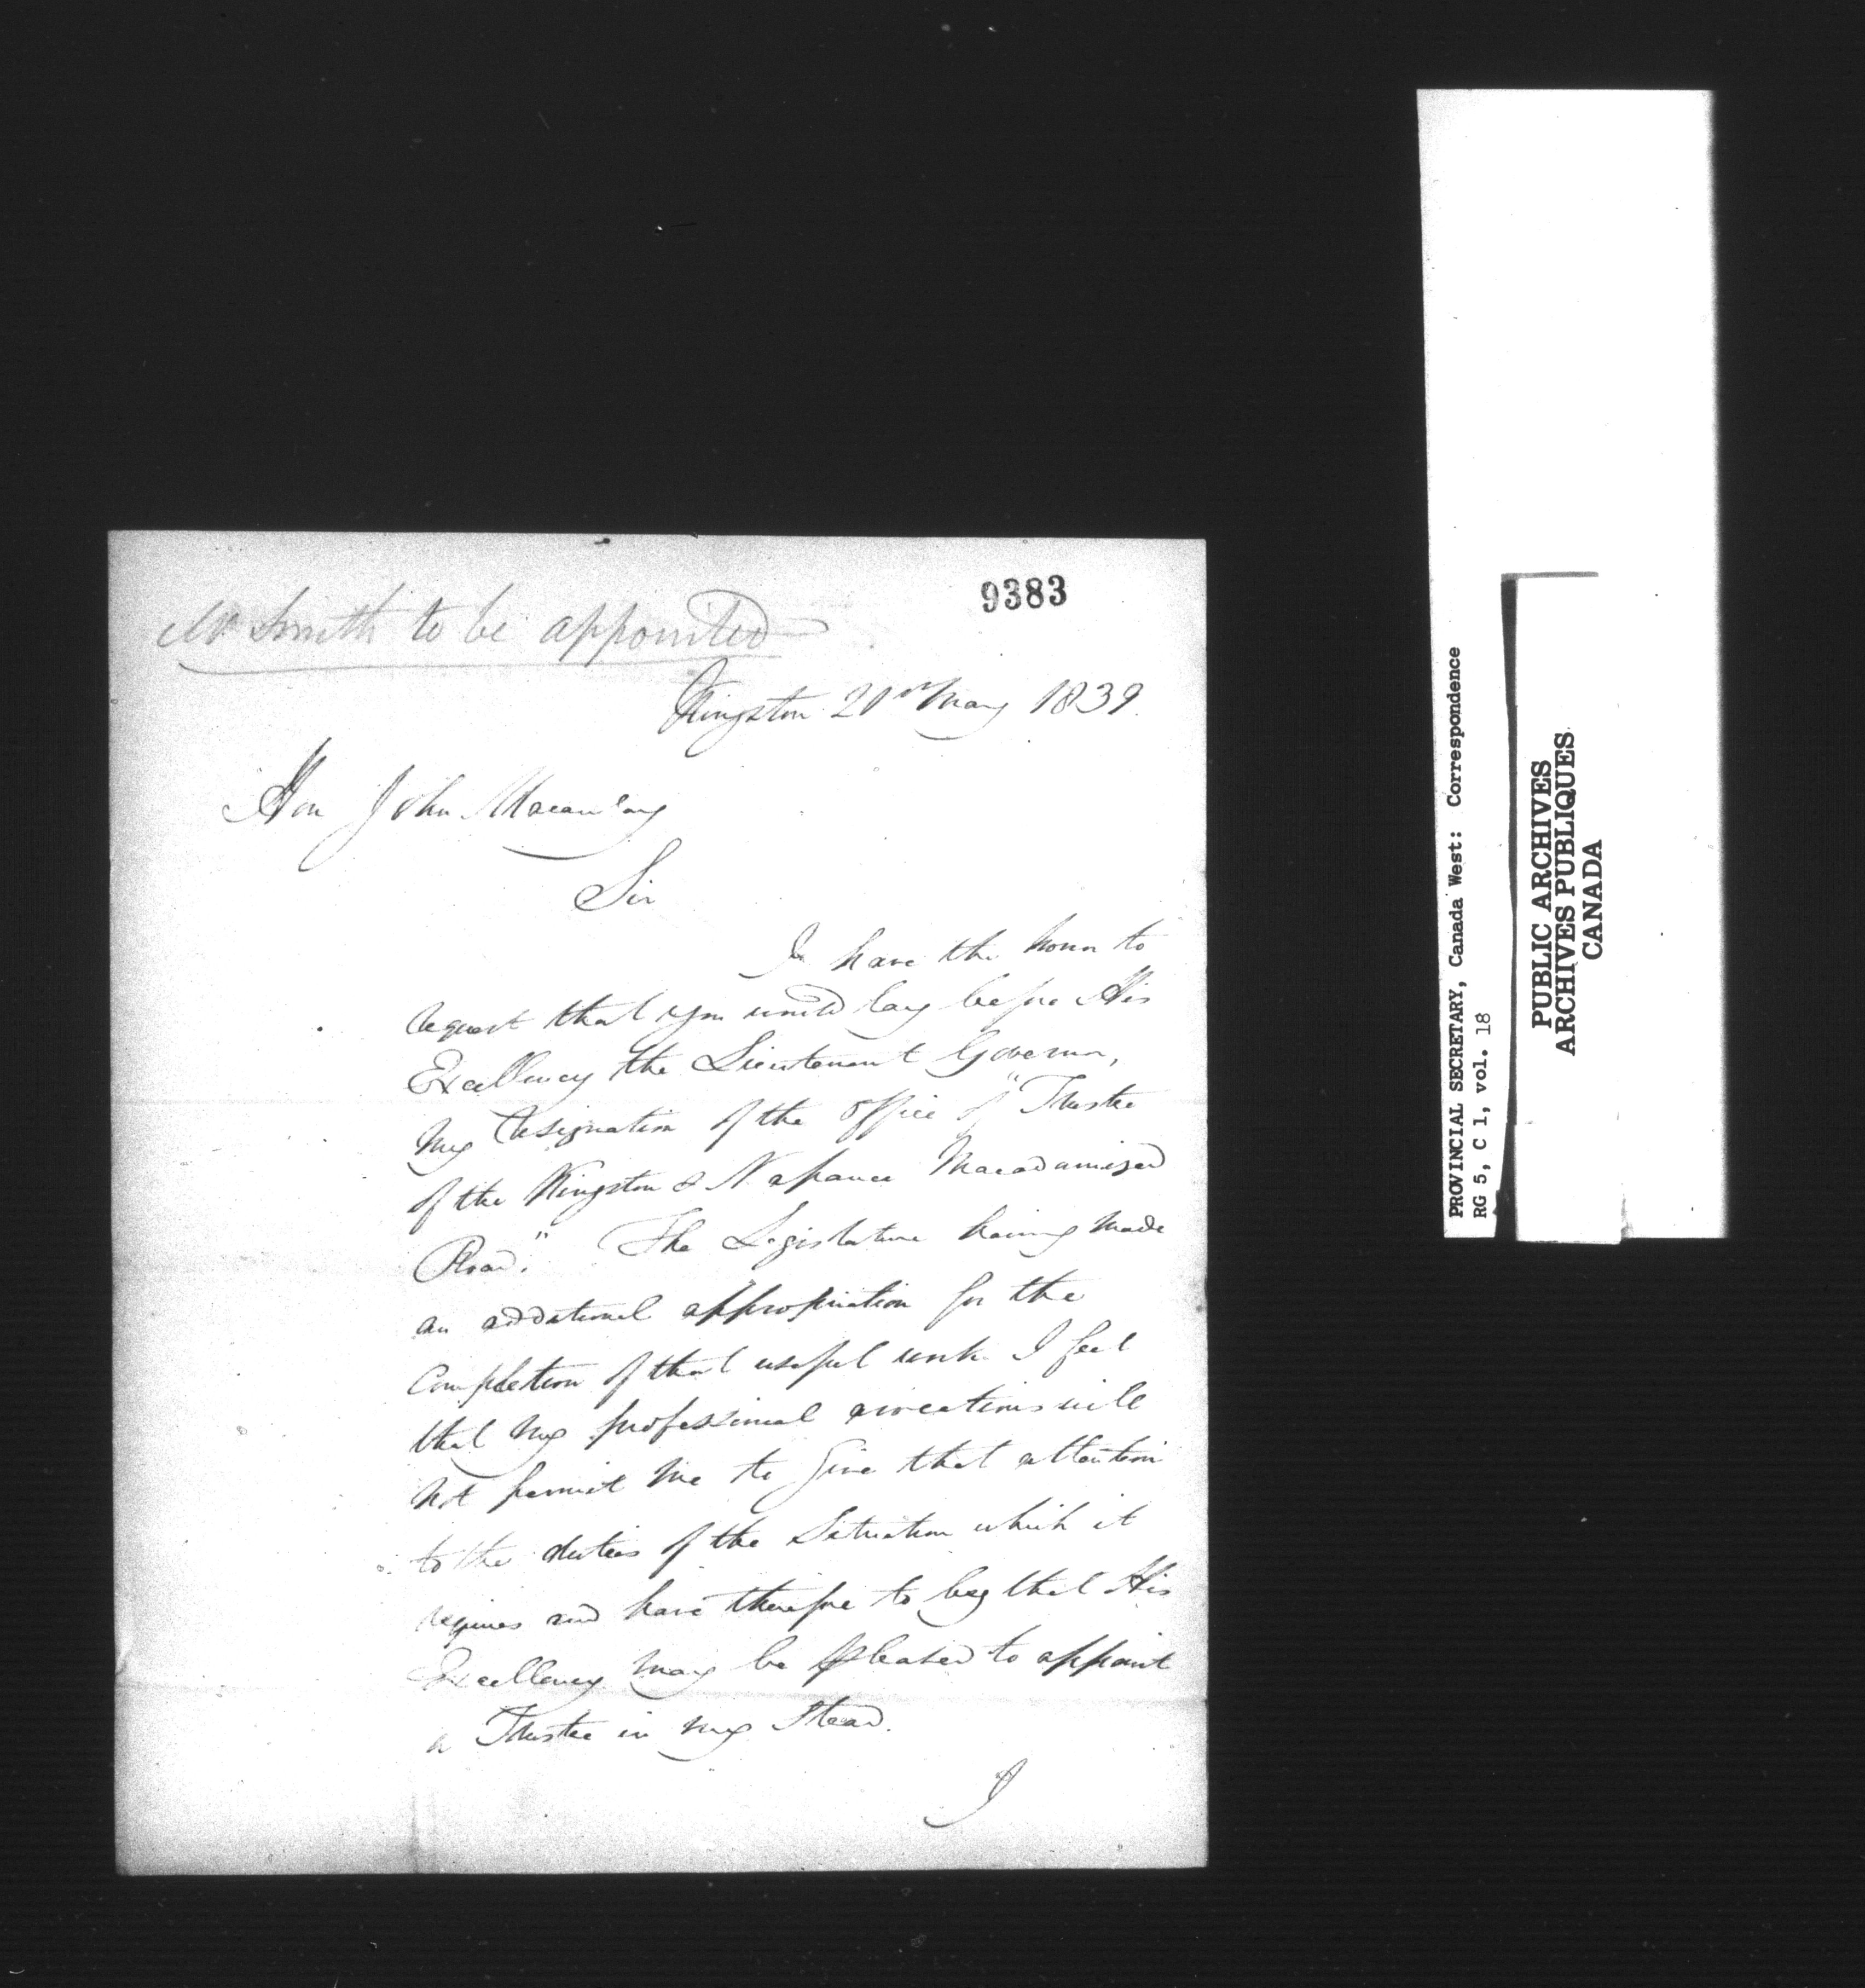 9383
Mr Smith to be appointed
Kingston 21st May 1839.
Hon John Macaulay
Sir
I have the honor to
request that you would lay before His
Excellency the Lieutenant Governor,
my resignation of the office of "Trustee
of the Kingston & Napanee Macadamized
Road." The Legislature having made
an additional appropriation for the
Completion of that useful work I feel
that my professional avocations will
not permit me to give that attention
to the duties of the Situation which it
requires and have therefore to beg that His
Excellency may be pleased to appoint
a Trustee in my Stead.
I
PROVINCIAL SECRETARY, Canada West: Correspondence
RG 5, C 1, vol. 18
PUBLIC ARCHIVES
ARCHIVES PUBLIQUES
CANADA